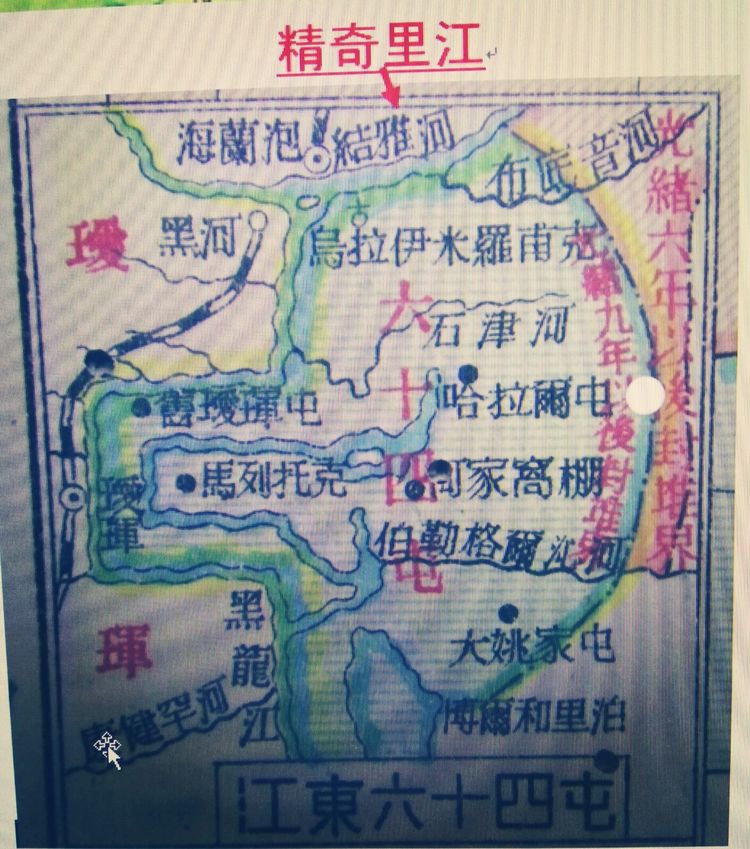 精奇里江
海蘭泡
結雅河
布底音河
光緒六年以後封堆界
璦
黑河
烏拉伊米羅甫克
九年以後封堆界
六十四屯
石津河
哈拉爾屯
舊璦琿屯
馬列托克
家窩棚
璦琿
伯勒格爾沁河
琿
黑龍江
大姚家屯
博爾和里泊
健罕河
江東六十四屯